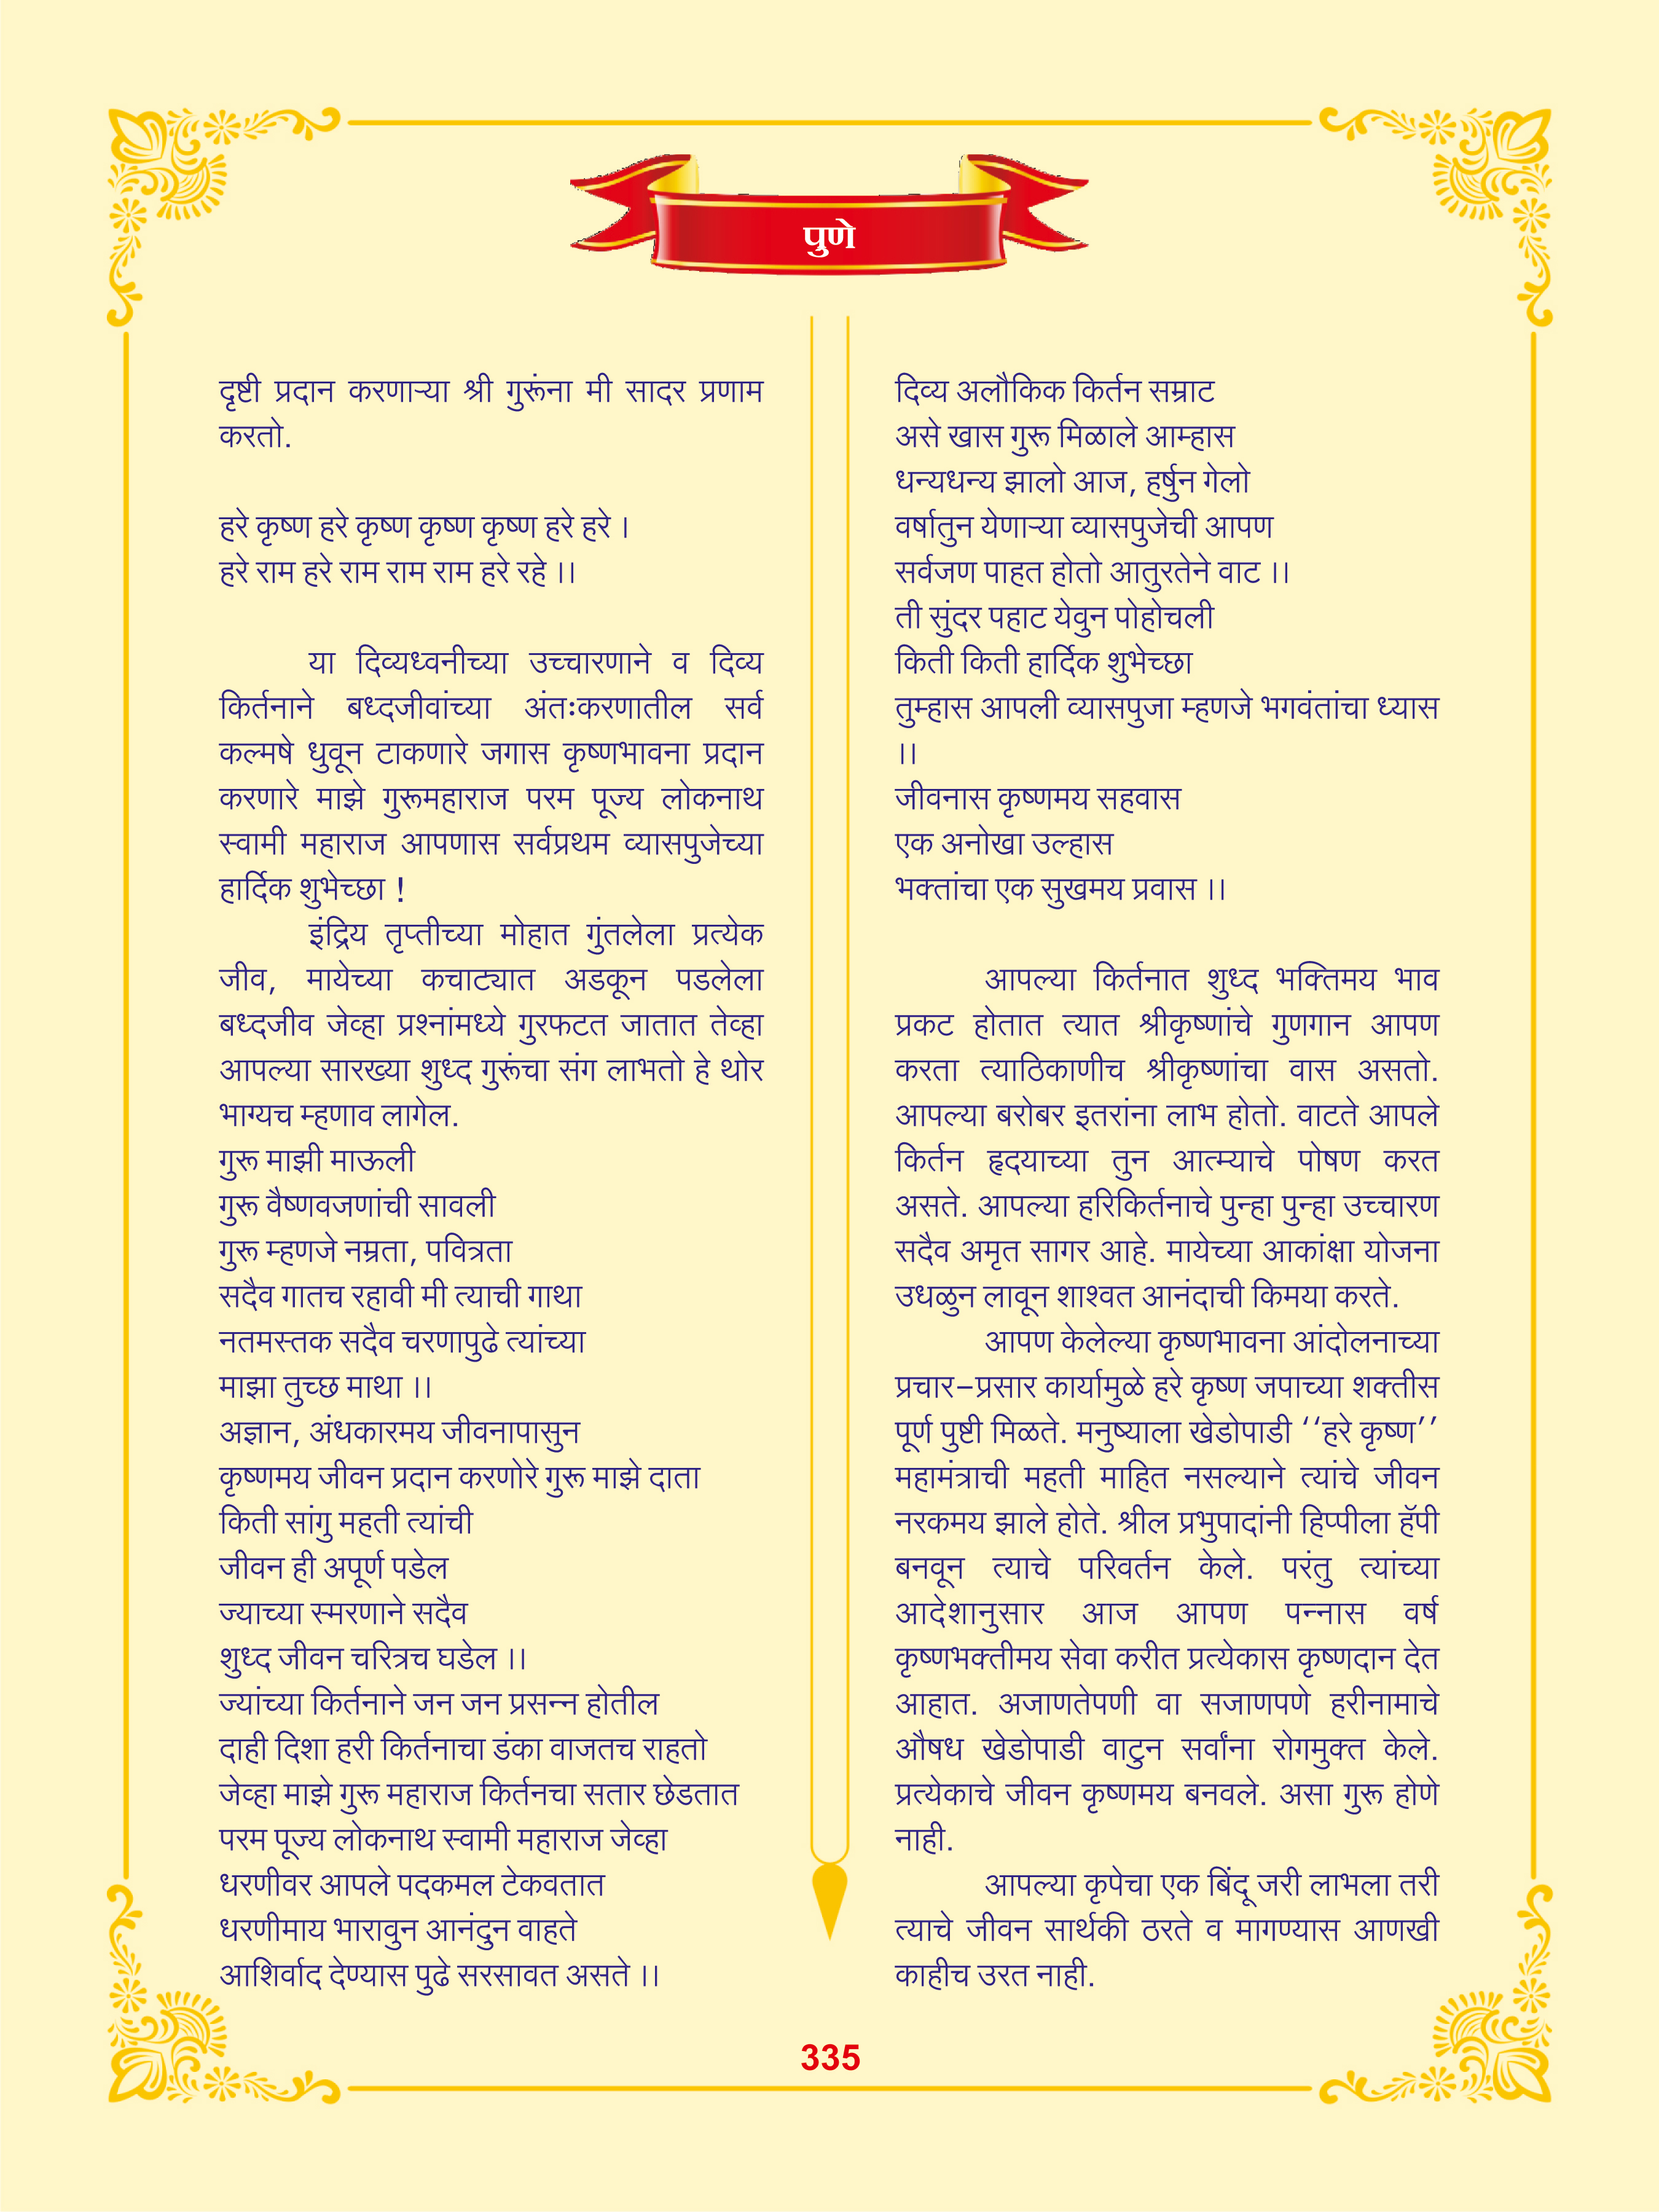 पुणे
दृष्टी प्रदान करणाऱ्या श्री गुरूंना मी सादर प्रणाम
करतो.
हरे कृष्ण हरे कृष्ण कृष्ण कृष्ण हरे हरे ।
हरे राम हरे राम राम राम हरे रहे ।।
या दिव्यध्वनीच्या उच्चारणाने व दिव्य
किर्तनाने बध्दजीवांच्या अंतःकरणातील सर्व
कल्मषे धुवून टाकणारे जगास कृष्णभावना प्रदान
करणारे माझे गुरूमहाराज परम पूज्य लोकनाथ
स्वामी महाराज आपणास सर्वप्रथम व्यासपुजेच्या
हार्दिक शुभेच्छा !
इंद्रिय तृप्तीच्या मोहात गुंतलेला प्रत्येक
जीव, मायेच्या कचाट्यात अडकून पडलेला
बध्दजीव जेव्हा प्रश्नांमध्ये गुरफटत जातात तेव्हा
आपल्या सारख्या शुध्द गुरूंचा संग लाभतो हे थोर
भाग्यच म्हणाव लागेल.
गुरू माझी माऊली
गुरू वैष्णवजणांची सावली
गुरू म्हणजे नम्रता, पवित्रता
सदैव गातच रहावी मी त्याची गाथा
नतमस्तक सदैव चरणापुढे त्यांच्या
माझा तुच्छ माथा ।।
अज्ञान, अंधकारमय जीवनापासुन
कृष्णमय जीवन प्रदान करणोरे गुरू माझे दाता
किती सांगु महती त्यांची
जीवन ही अपूर्ण पडेल
ज्याच्या स्मरणाने सदैव
शुध्द जीवन चरित्रच घडेल ।।
ज्यांच्या किर्तनाने जन जन प्रसन्न होतील
दाही दिशा हरी किर्तनाचा डंका वाजतच राहतो
जेव्हा माझे गुरू महाराज किर्तनचा सतार छेडतात
परम पूज्य लोकनाथ स्वामी महाराज जेव्हा
धरणीवर आपले पदकमल टेकवतात
धरणीमाय भारावुन आनंदुन वाहते
आशिर्वाद देण्यास पुढे सरसावत असते ।।
दिव्य अलौकिक किर्तन सम्राट
असे खास गुरू मिळाले आम्हास
धन्यधन्य झालो आज, हर्षुन गेलो
वर्षातुन येणाऱ्या व्यासपुजेची आपण
सर्वजण पाहत होतो आतुरतेने वाट ।।
ती सुंदर पहाट येवुन पोहोचली
किती किती हार्दिक शुभेच्छा
तुम्हास आपली व्यासपुजा म्हणजे भगवंतांचा ध्यास
।।
जीवनास कृष्णमय सहवास
एक अनोखा उल्हास
भक्तांचा एक सुखमय प्रवास ।।
आपल्या किर्तनात शुध्द भक्तिमय भाव
प्रकट होतात त्यात श्रीकृष्णांचे गुणगान आपण
करता त्याठिकाणीच श्रीकृष्णांचा वास असतो.
आपल्या बरोबर इतरांना लाभ होतो. वाटते आपले
किर्तन हृदयाच्या तुन आत्म्याचे पोषण करत
असते. आपल्या हरिकिर्तनाचे पुन्हा पुन्हा उच्चारण
सदैव अमृत सागर आहे. मायेच्या आकांक्षा योजना
उधळुन लावून शाश्वत आनंदाची किमया करते.
आपण केलेल्या कृष्णभावना आंदोलनाच्या
प्रचार–प्रसार कार्यामुळे हरे कृष्ण जपाच्या शक्तीस
पूर्ण पुष्टी मिळते. मनुष्याला खेडोपाडी ‘‘हरे कृष्ण’’
महामंत्राची महती माहित नसल्याने त्यांचे जीवन
नरकमय झाले होते. श्रील प्रभुपादांनी हिप्पीला हॅपी
बनवून त्याचे परिवर्तन केले. परंतु त्यांच्या
आदेशानुसार आज आपण पन्नास वर्ष
कृष्णभक्तीमय सेवा करीत प्रत्येकास कृष्णदान देत
आहात. अजाणतेपणी वा सजाणपणे हरीनामाचे
औषध खेडोपाडी वाटुन सर्वांना रोगमुक्त केले.
प्रत्येकाचे जीवन कृष्णमय बनवले. असा गुरू होणे
नाही.
आपल्या कृपेचा एक बिंदू जरी लाभला तरी
त्याचे जीवन सार्थकी ठरते व मागण्यास आणखी
काहीच उरत नाही.
335